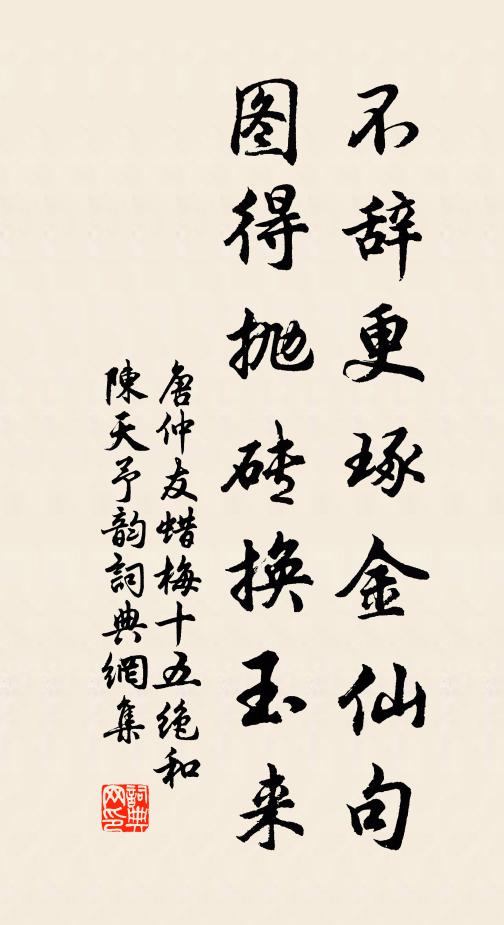 不辞更琢金仙句
图得抛砖换玉来
唐仲友蜡梅十五绝和
陳天予韵詞典網集
詞典网印